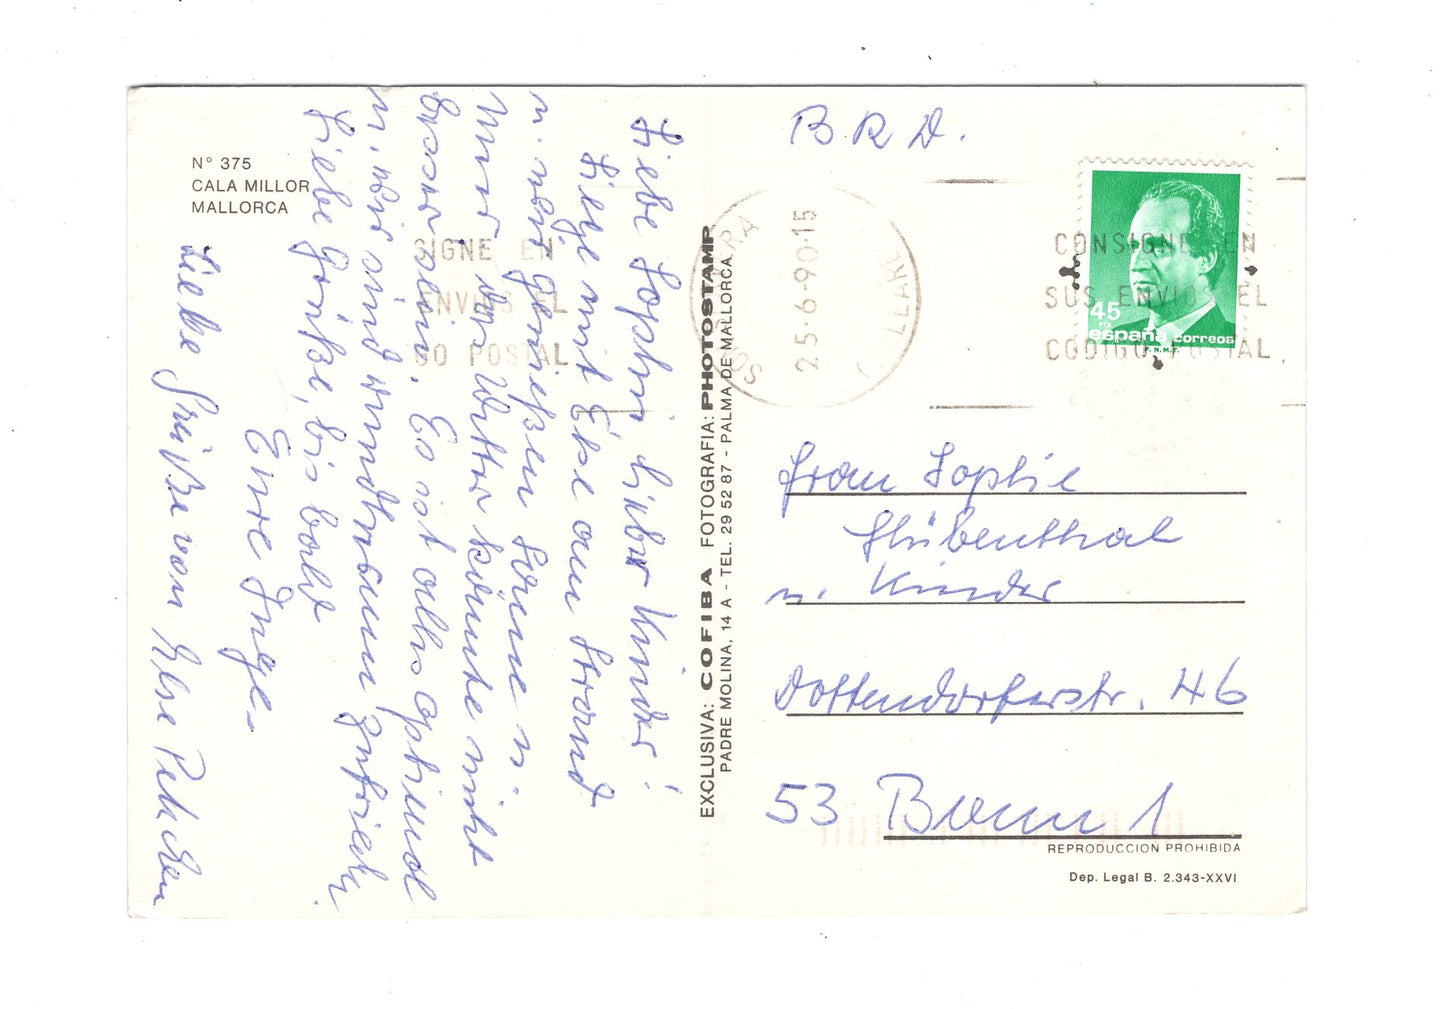 N° 375
CALA MILLOR
MALLORCA
Liebe Sophie liebe Kinder!
Liege mit Else am Strand
u. wir genießen Sonne u.
Meer der Wetter könnte nicht
besser sein. Es ist alles optimal
u. wir sind rundherum zufrieden.
Liebe Grüße, bis bald
Eure Inge.
Liebe Grüße von Else
EXCLUSIVA: COFIBA FOTOGRAFIA: PHOTOSTAMP
PADRE MOLINA, 14 A - TEL. 29 52 87 - PALMA DE MALLORCA
B R D.
SIGNE EN
ENVIOS EL
GO POSTAL
25-6-90-15
CONSIGNE EN
SUS ENVIOS EL
CODIGO POSTAL
45
PTA
españa correos
F.N.M.T.
Frau Sophie
Stübenthal
u. Kinder
Dottendorferstr. 46
53 Bonn 1
REPRODUCCION PROHIBIDA
Dep. Legal B. 2.343-XXVI